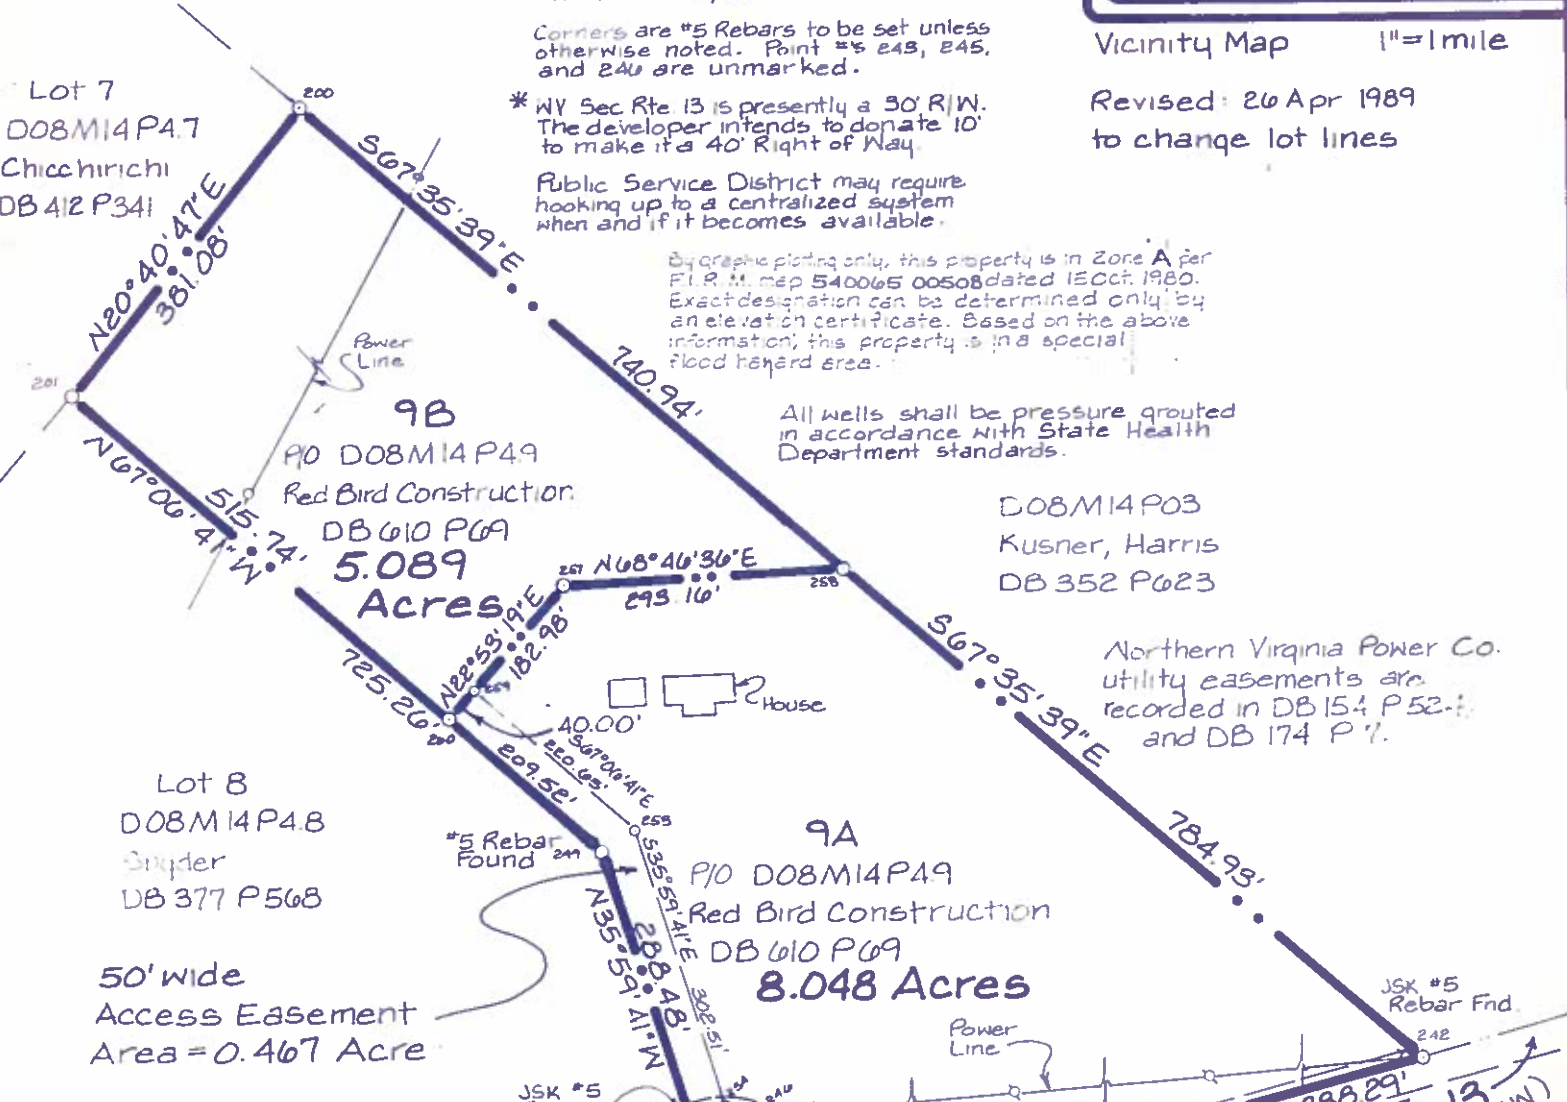 Corners are #5 Rebars to be set unless
otherwise noted. Point #'s 243, 245,
and 246 are unmarked.
* WV Sec Rte 13 is presently a 30' R/W.
The developer intends to donate 10'
to make it a 40' Right of Way.
Public Service District may require
hooking up to a centralized system
when and if it becomes available.
By graphic plotting only, this property is in Zone A per
F.I.R.M. map 540065 0050B dated 15 Oct. 1980.
Exact designation can be determined only by
an elevation certificate. Based on the above
information, this property is in a special
flood hazard area.
All wells shall be pressure grouted
in accordance with State Health
Department standards.
Vicinity Map 1"=1mile
Revised: 26 Apr 1989
to change lot lines
Lot 7
D08M14P4.7
Chicchirichi
DB 412 P341
200
S67°35'39"E
740.94'
N20°40'47"E
381.08'
201
Power
Line
9B
P/O D08M14P4.9
Red Bird Construction
DB 610 P69
5.089
Acres
N67°06'41"W
515.74'
725.26'
257
N68°46'36"E
293.16'
258
N22°53'19"E
182.98'
259
260
40.00'
House
D08M14P03
Kusner, Harris
DB 352 P623
Northern Virginia Power Co.
utility easements are
recorded in DB 154 P 52
and DB 174 P
S67°35'39"E
784.93'
S67°06'41"E
220.65'
209.52'
Lot 8
D08M14P4.8
Snyder
DB 377 P568
#5 Rebar
Found
N35°59'41"W
288.48'
S35°59'41"E
302.51'
9A
P/O D08M14P4.9
Red Bird Construction
DB 610 P69
8.048 Acres
50' wide
Access Easement
Area = 0.467 Acre
JSK #5
Rebar Fnd.
242
Power
Line
JSK #5
246
13